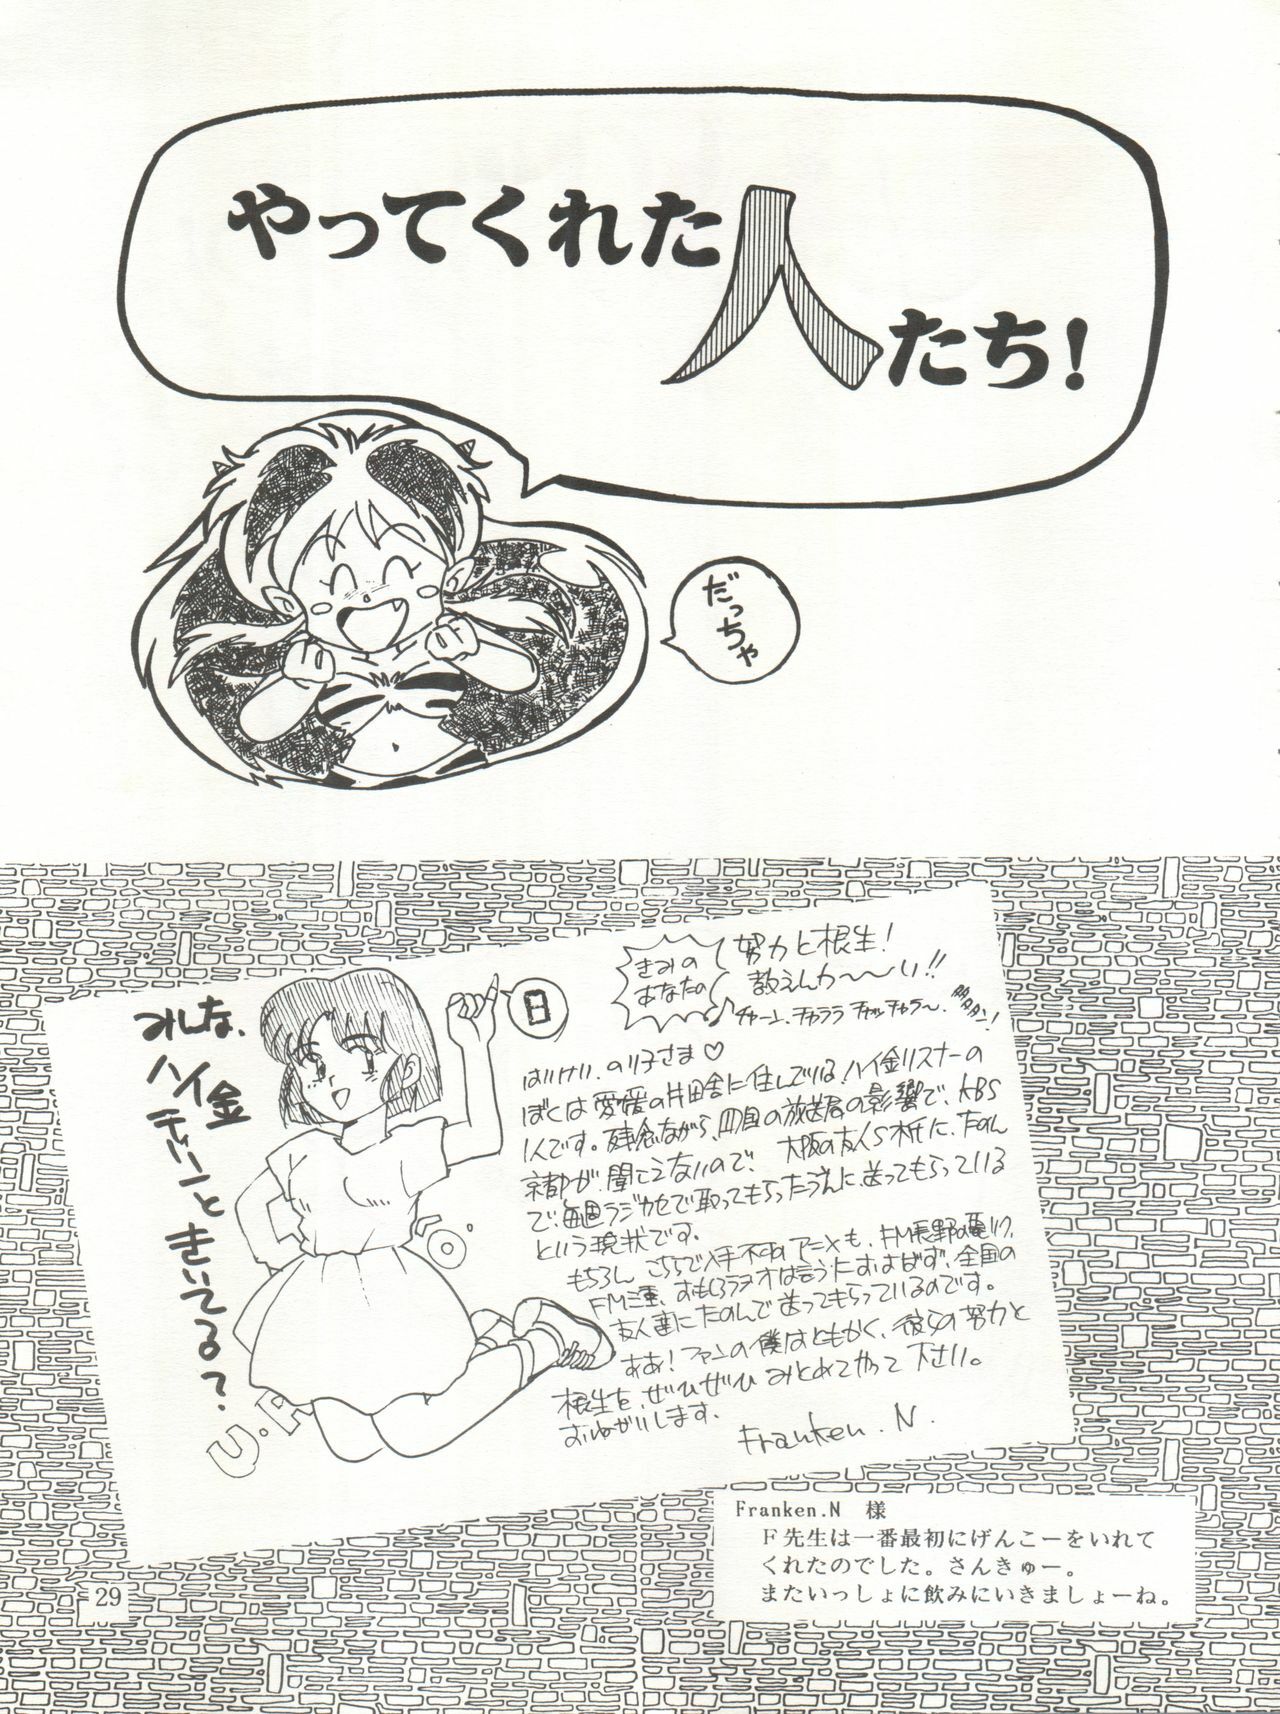 やってくれた人たち!
だっちゃ
みんな、
ハイ金
きいてる?
日
きみの
あなたの
努力と根生!
教えんか〜〜い!!
はいけい、のり子さま♡
ぼくは愛媛の片田舎に住んでいる、ハイ金リスナーの
1人です。残念ながら、四国の放送局の影響で、KBS
京都が、聞こえないので、大阪の友人S木氏に、たのん
で、毎週ラジカセで取ってもらったうえに、送ってもらっている
という現状です。
もちろん、こちらで入手不可のアニメも、FM長野の
FM三重、すもも
友人達にたのんで送ってもらっているのです。
ああ!ファンの僕はともかく、彼らの努力と
根生を、ぜひぜひみとめてやって下さい。
おねがいします。
Franken.N.
U.P.
Franken.N 様
F先生は一番最初にげんこーをいれて
くれたのでした。さんきゅー。
またいっしょに飲みにいきましょーね。
29